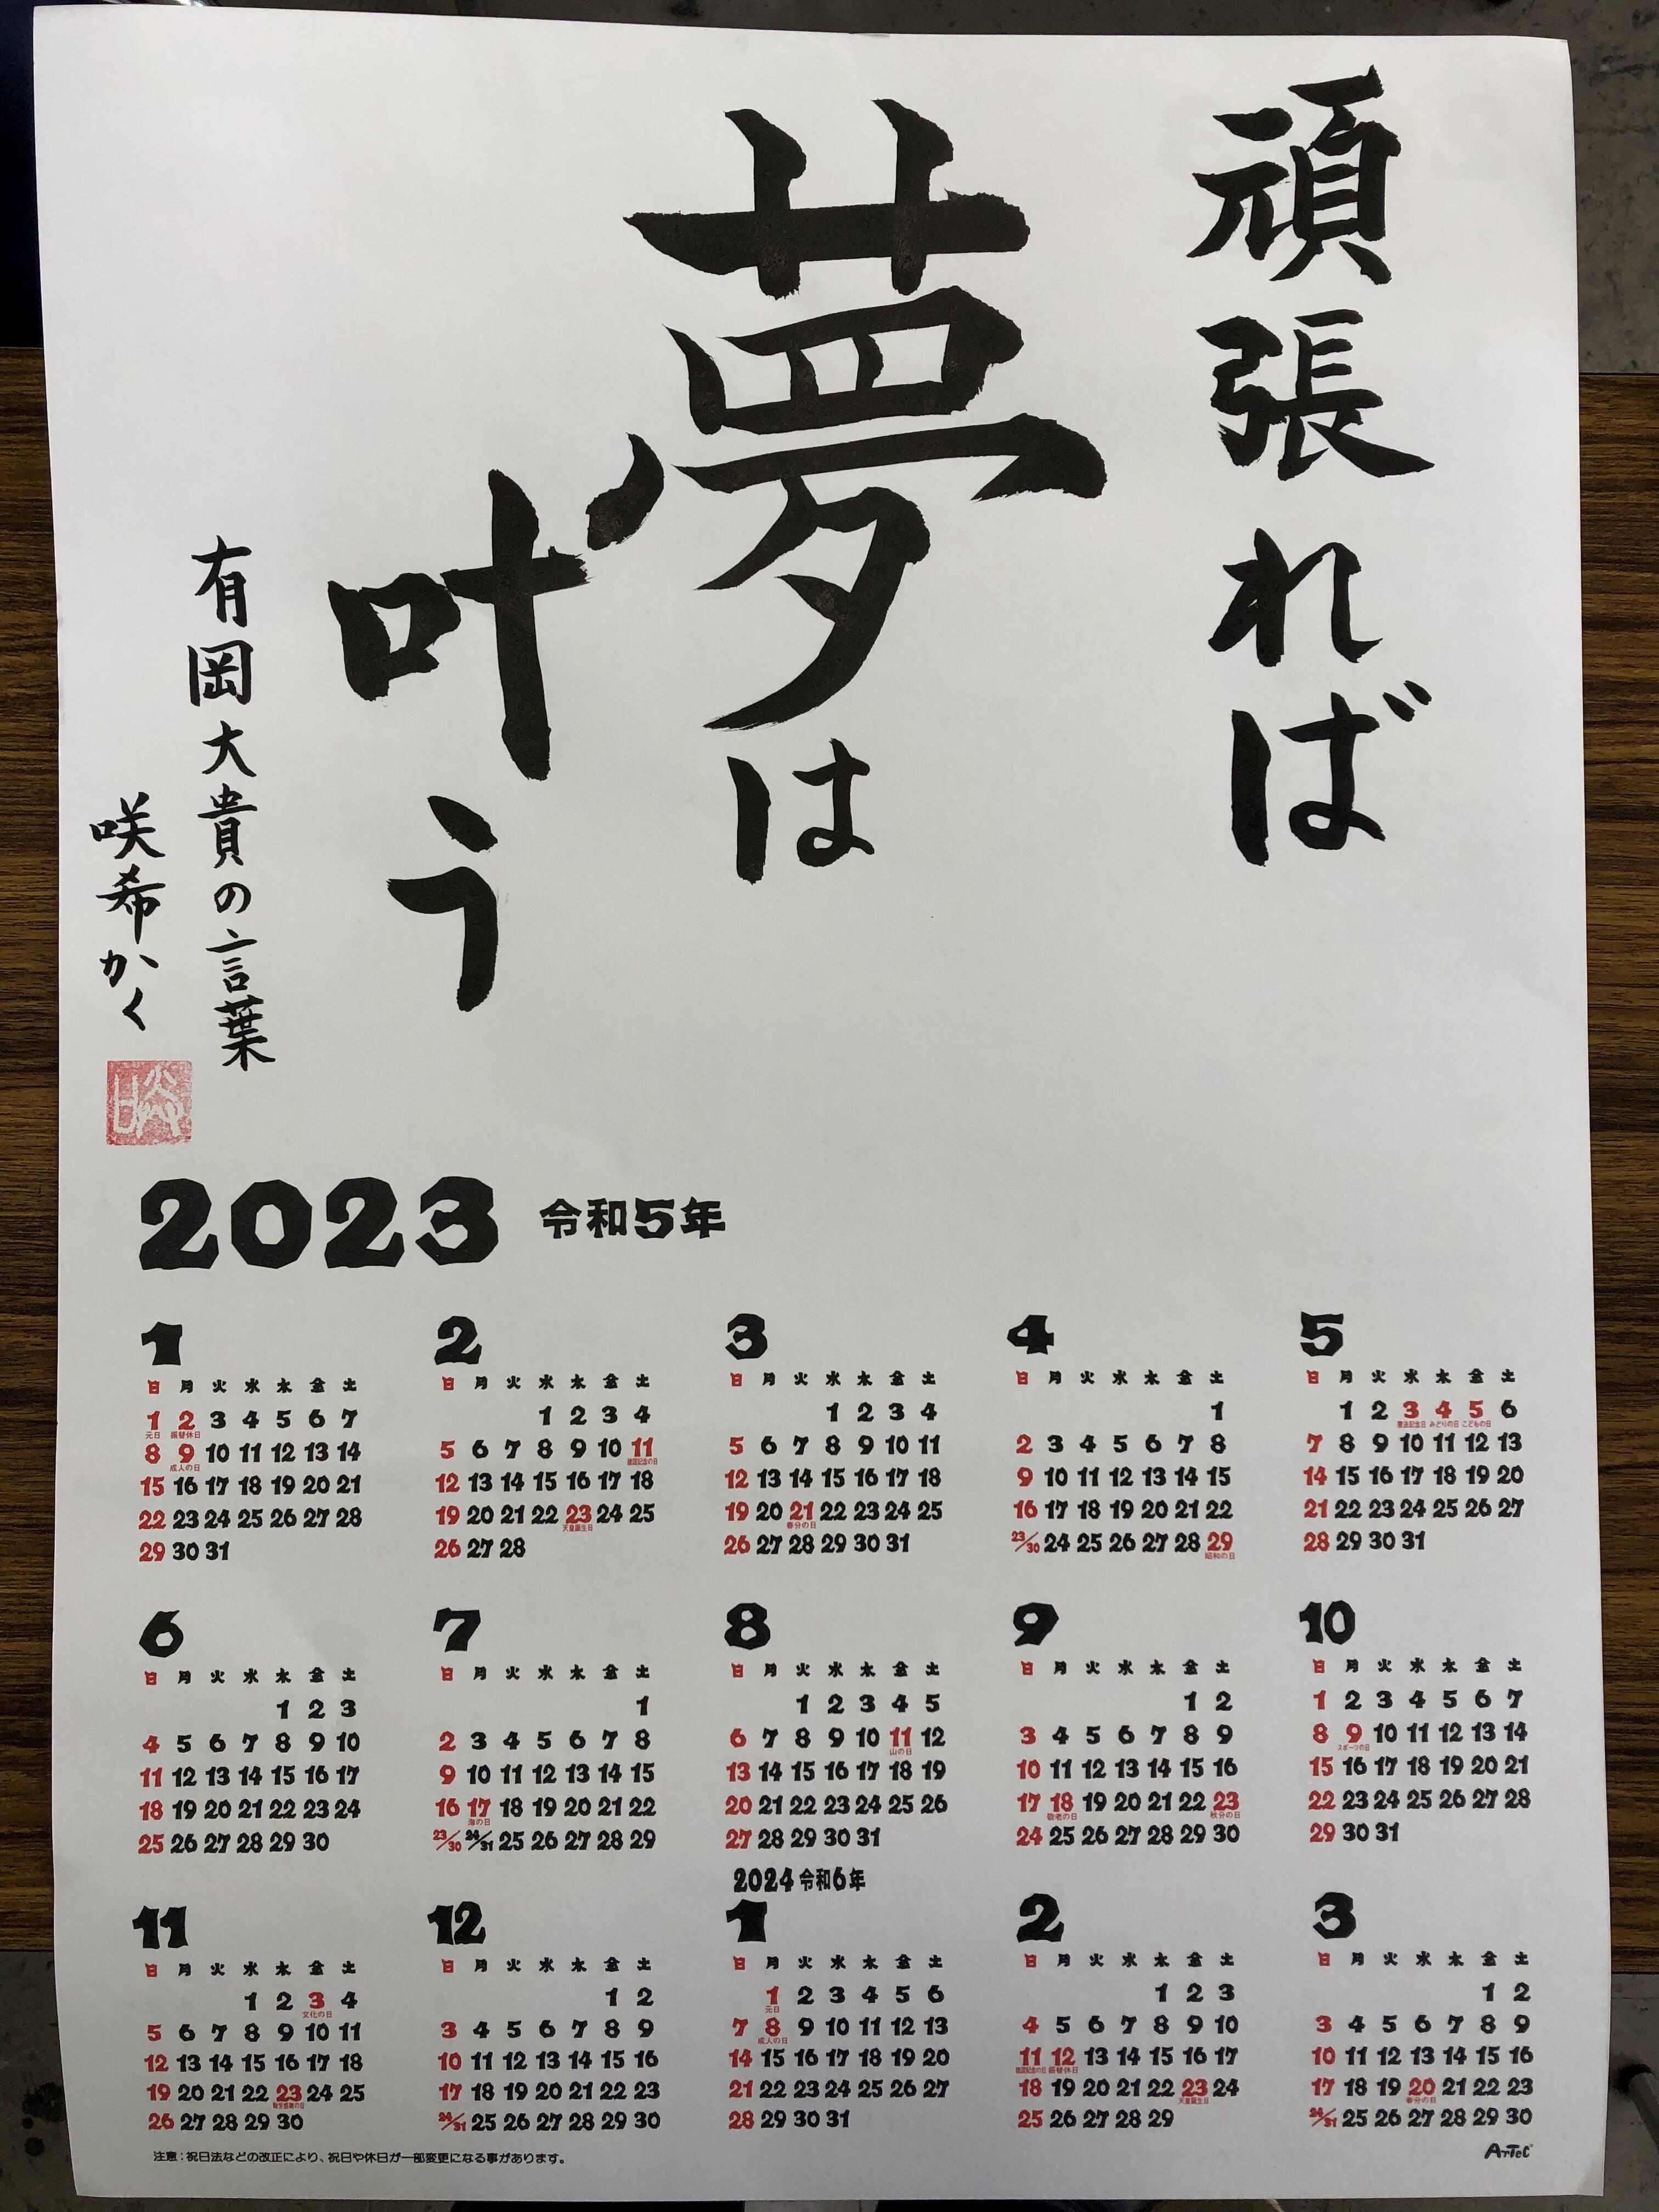 頑張れば
夢は
叶う
有岡大貴の言葉
咲希かく
2023 令和5年
1
日 月 火 水 木 金 土
1 2 3 4 5 6 7
元日 振替休日
8 9 10 11 12 13 14
成人の日
15 16 17 18 19 20 21
22 23 24 25 26 27 28
29 30 31
2
日 月 火 水 木 金 土
1 2 3 4
5 6 7 8 9 10 11
建国記念の日
12 13 14 15 16 17 18
19 20 21 22 23 24 25
天皇誕生日
26 27 28
3
日 月 火 水 木 金 土
1 2 3 4
5 6 7 8 9 10 11
12 13 14 15 16 17 18
19 20 21 22 23 24 25
春分の日
26 27 28 29 30 31
4
日 月 火 水 木 金 土
1
2 3 4 5 6 7 8
9 10 11 12 13 14 15
16 17 18 19 20 21 22
23/30 24 25 26 27 28 29
昭和の日
5
日 月 火 水 木 金 土
1 2 3 4 5 6
憲法記念日 みどりの日 こどもの日
7 8 9 10 11 12 13
14 15 16 17 18 19 20
21 22 23 24 25 26 27
28 29 30 31
6
日 月 火 水 木 金 土
1 2 3
4 5 6 7 8 9 10
11 12 13 14 15 16 17
18 19 20 21 22 23 24
25 26 27 28 29 30
7
日 月 火 水 木 金 土
1
2 3 4 5 6 7 8
9 10 11 12 13 14 15
16 17 18 19 20 21 22
海の日
23/30 24/31 25 26 27 28 29
8
日 月 火 水 木 金 土
1 2 3 4 5
6 7 8 9 10 11 12
山の日
13 14 15 16 17 18 19
20 21 22 23 24 25 26
27 28 29 30 31
9
日 月 火 水 木 金 土
1 2
3 4 5 6 7 8 9
10 11 12 13 14 15 16
17 18 19 20 21 22 23
敬老の日 秋分の日
24 25 26 27 28 29 30
10
日 月 火 水 木 金 土
1 2 3 4 5 6 7
8 9 10 11 12 13 14
スポーツの日
15 16 17 18 19 20 21
22 23 24 25 26 27 28
29 30 31
11
日 月 火 水 木 金 土
1 2 3 4
文化の日
5 6 7 8 9 10 11
12 13 14 15 16 17 18
19 20 21 22 23 24 25
勤労感謝の日
26 27 28 29 30
12
日 月 火 水 木 金 土
1 2
3 4 5 6 7 8 9
10 11 12 13 14 15 16
17 18 19 20 21 22 23
24/31 25 26 27 28 29 30
2024 令和6年
1
日 月 火 水 木 金 土
1 2 3 4 5 6
元日
7 8 9 10 11 12 13
成人の日
14 15 16 17 18 19 20
21 22 23 24 25 26 27
28 29 30 31
2
日 月 火 水 木 金 土
1 2 3
4 5 6 7 8 9 10
11 12 13 14 15 16 17
建国記念の日 振替休日
18 19 20 21 22 23 24
天皇誕生日
25 26 27 28 29
3
日 月 火 水 木 金 土
1 2
3 4 5 6 7 8 9
10 11 12 13 14 15 16
17 18 19 20 21 22 23
春分の日
24/31 25 26 27 28 29 30
注意：祝日法などの改正により、祝日や休日が一部変更になる事があります。
ArTeC